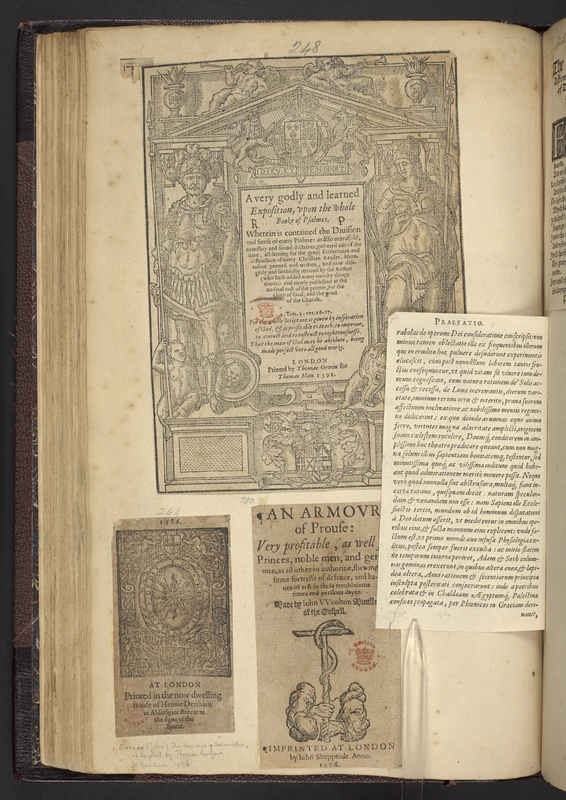 248
DIEV ET MON DROIT
A very godly and learned
Exposition, vpon the whole
Booke of Psalmes.
R P
Wherein is contained the Diuision
and Sense of euery Psalme: as also manifold,
necessary and sound doctrines, gathered out of the
same, all seruing for the great furtherance and
instruction of euery Christian Reader. Here-
tofore penned and written, and now dili-
gently and faithfully reuised by the Author
(who hath added many worthy things
therto) and newly published at the
no small cost of the printer, for the
glory of God, and the good
of the Church.
2. Tim. 3. ver. 16. 17.
For the whole Scripture is giuen by inspiration
of God, & is profitable to teach, to improue,
to correct and to instruct in righteousnesse.
That the man of God may be absolute, being
made perfect vnto all good works.
LONDON
Printed by Thomas Orwin for
Thomas Man. 1591.
PRAEFATIO.
rabolas de operum Dei consideratione conscripsit: non
minus tamen oblectatio illa ex frequentibus illorum
qui in erudito hoc puluere desudarunt experimentis
elucescit, cum post
laborem tantis fru-
ctus consequuntur, vt quid viuam sit viuere tum de-
mum cognoscant, cum natura rationem de Solis ac-
cessu & recessu, de Luna incrementis, dierum vari-
etate, omnium rerum ortu & interitu, prana suorum
affectuum inclinatione ac nobilissimo mentis regimi-
ne
ferre, virtutes magna alacritate amplecti, originem
suam caelestem recolere, Denique conditorem in am-
plissimo hoc theatro praedicare queant, cum non mag-
na solum illius sapientiam bonitatemque testentur, sed
minutissima quaeque ac vilissima inditum quid habe-
ant quod admirationem merito mouere possit. Neque
vero quod nonnulla sint abstrusiora, multaque fiant in-
certa ratione, quisquam dicat. naturam speculan-
dam & venandam non esse: nam Sapiens ille Eccle-
siastis tertio, mundum ab id hominum disputationi
à Deo datum asserit, vt meditentur in omnibus ope-
ribus eius, & facta manuum eius explicent: vnde fa-
ctum est, vt primo mundo aeuo infusa Physiologia coe-
litus, postea semper fuerit exculta: ac initio statim
ne temporum iniuria periret, Adam & Seth colum-
nas geminas erexerunt, in quibus altera aenea, & lapi-
dea altera, Astra rationem & scientiarum principia
insculpta posteritati consecrarunt: inde à patribus
celebrata & in Chaldaam Ægyptumque, Palestina
confines propagata, per Phoenices in Graciam deri-
uauit,
249
1586.
AT LONDON
Printed in the now dwelling
house of Henrie Denham
in Aldersgate streete at
the signe of the
starre.
250
¶AN ARMOVR
of Proufe:
Very profitable, as well
Princes, noble men, and gen
men, as all other in authoritie, shewing
firme fortresse of defence, and ha-
uen of rest in these troublesome
times and perilous dayes.
Made by Iohn VVoolton Minister
of the Gospell.
¶IMPRINTED AT LONDON
by Iohn Shepperde. Anno.
1576.